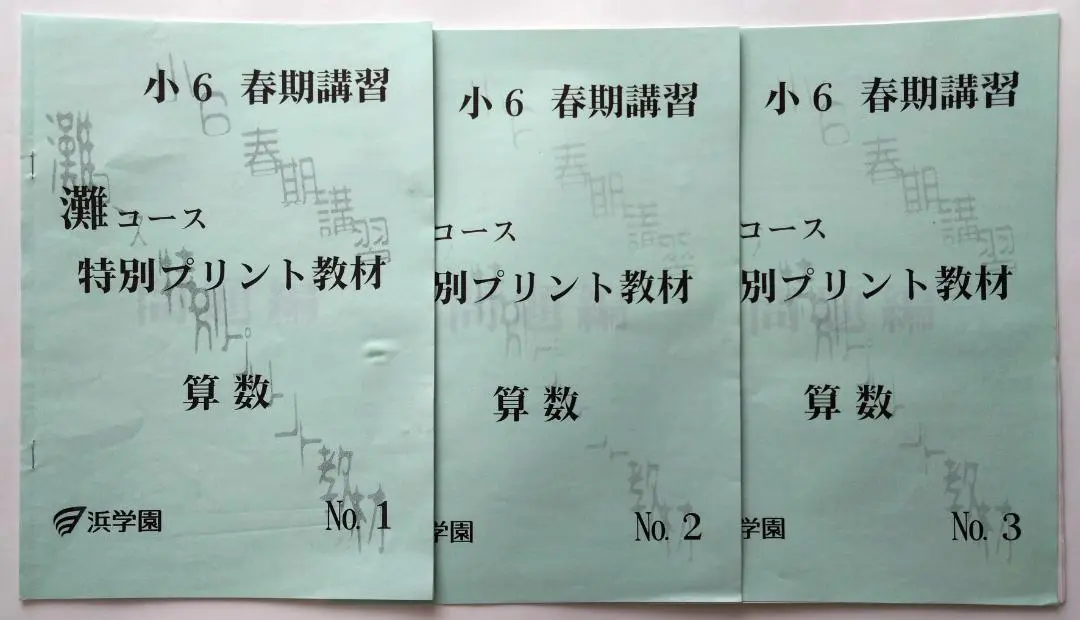 小6 春期講習
灘コース
特別プリント教材
算数
浜学園
No. 1
小6 春期講習
コース
別プリント教材
算数
学園
No. 2
小6 春期講習
コース
別プリント教材
算数
学園
No. 3